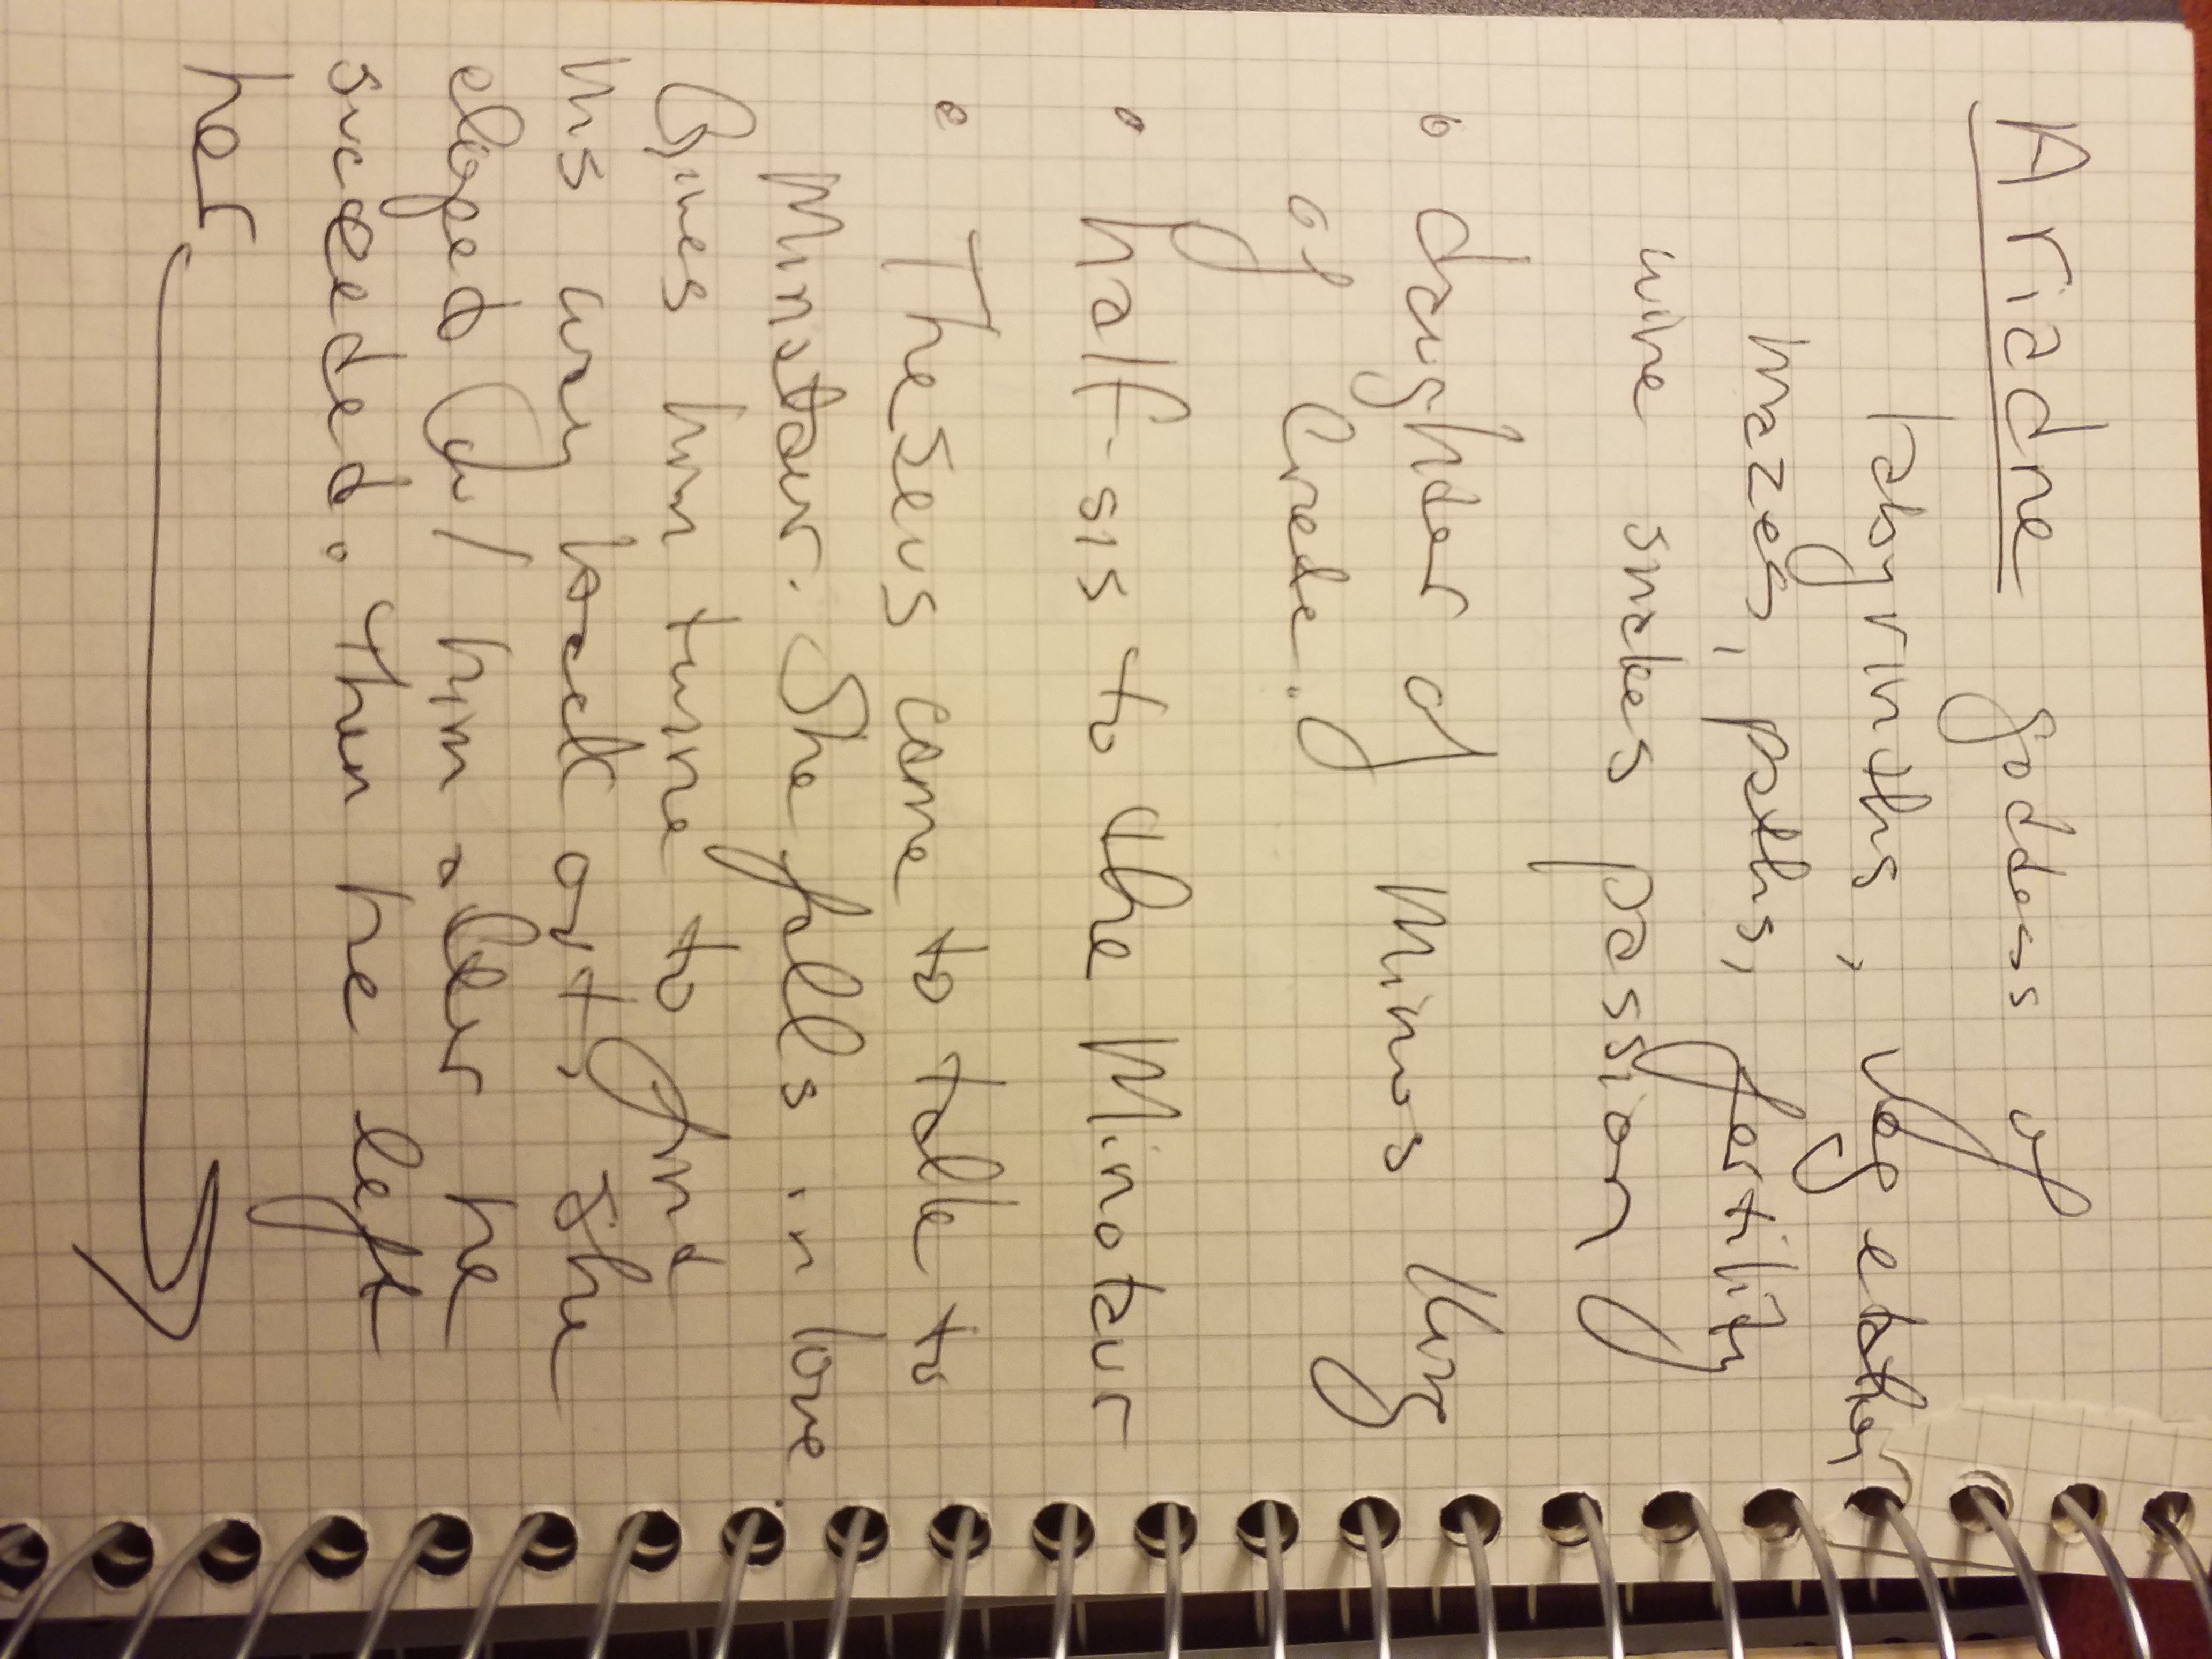 Ariadne goddess of
labyrinths, vegetation
mazes, paths, fertility
wine snakes passion
• daughter of Minos King
of Crete.
• half-sis to the Minotaur
• Theseus came to talk to
Minotaur. She falls in love
Gives him twine to find
his way back out, She
eloped w/ him after he
succeeded. Then he left
her